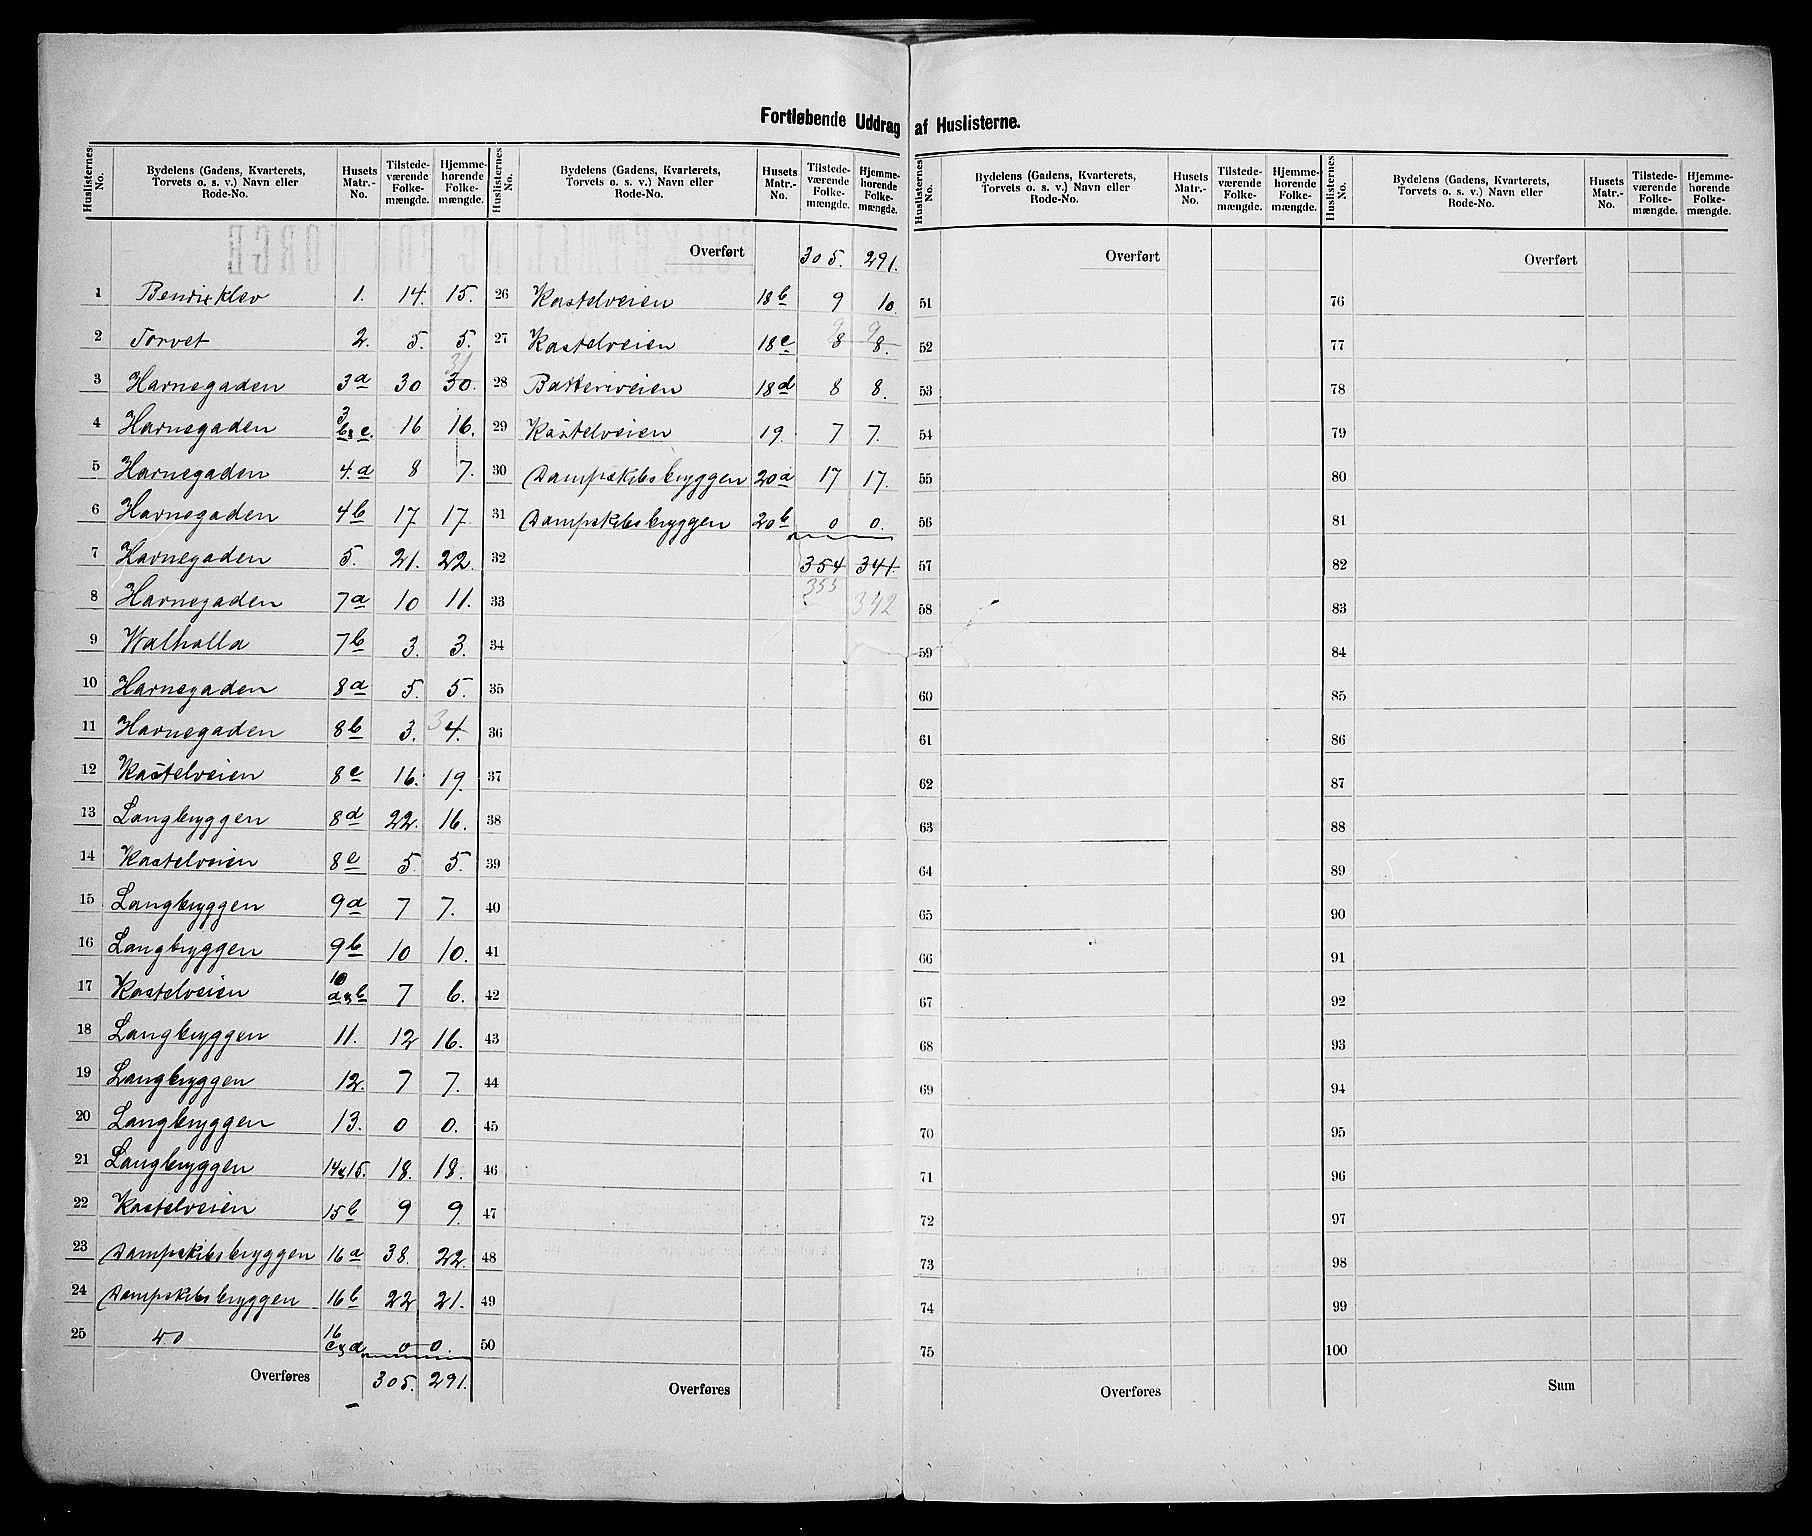 Fortløbende Uddrag af Huslisterne.
Huslisternes No. | Bydelens (Gadens, Kvarterets, Torvets o. s. v.) Navn eller Rode-No. | Husets Matr.-No. | Tilstedeværende Folkemængde. | Hjemmehørende Folkemængde.
1 Bendixklev 1. 14. 15.
2 Torvet 2. 5. 5.
3 Havnegaden 3a 30 30. 31
4 Havnegaden 3 b&c. 16 16.
5 Havnegaden 4.a 8 7.
6 Havnegaden 4b 17 17.
7 Havnegaden 5. 21. 22.
8 Havnegaden 7a 10 11.
9 Walhalla 7b 3. 3.
10 Havnegaden 8a 5. 5.
11 Havnegaden 8b 3. 3 4.
12 Kastelveien 8c 16. 19.
13 Langbryggen 8d 22. 16.
14 Kastelveien 8e 5. 5.
15 Langbryggen 9a 7 7.
16 Langbryggen 9b 10 10.
17 Kastelveien 10 a&b 7 6.
18 Langbryggen 11. 12 16.
19 Langbryggen 12. 7 7.
20 Langbryggen 13. 0 0.
21 Langbryggen 14&15. 18. 18.
22 Kastelveien 15b 9 9.
23 Dampskibsbryggen 16a 38. 22.
24 Dampskibsbryggen 16b 22 21.
25 do 16 c&d 0 0.
Overføres 305. 291.
Huslisternes No. | Bydelens (Gadens, Kvarterets, Torvets o. s. v.) Navn eller Rode-No. | Husets Matr.-No. | Tilstedeværende Folkemængde. | Hjemmehørende Folkemængde.
Overført 305. 291.
26 Kastelveien 18b 9 10.
27 Kastelveien 18c 9 8 9 8.
28 Batteriveien 18d 8 8.
29 Kastelveien 19. 7 7.
30 Dampskibsbryggen 20a 17 17.
31 Dampskibsbryggen 20b 0 0.
32 354 341.
33 355 342
34
35
36
37
38
39
40
41
42
43
44
45
46
47
48
49
50
Overføres
Huslisternes No. | Bydelens (Gadens, Kvarterets, Torvets o. s. v.) Navn eller Rode-No. | Husets Matr.-No. | Tilstedeværende Folkemængde. | Hjemmehørende Folkemængde.
Overført
51
52
53
54
55
56
57
58
59
60
61
62
63
64
65
66
67
68
69
70
71
72
73
74
75
Overføres
Huslisternes No. | Bydelens (Gadens, Kvarterets, Torvets o. s. v.) Navn eller Rode-No. | Husets Matr.-No. | Tilstedeværende Folkemængde. | Hjemmehørende Folkemængde.
Overført
76
77
78
79
80
81
82
83
84
85
86
87
88
89
90
91
92
93
94
95
96
97
98
99
100
Sum